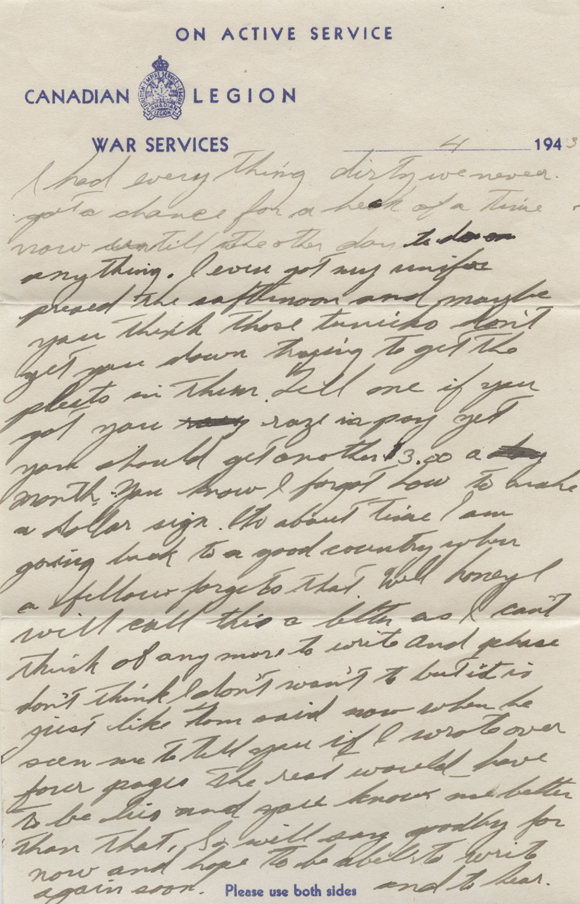 ON ACTIVE SERVICE
CANADIAN LEGION
WAR SERVICES
4 1943
I had every thing dirty we never
got a chance for a heck of a time
now untill the other day to do
any thing. I even got my
presed the safternoon and maybe
you think those tunicks don't
get you down trying to get the
pleets in them. Tell me if you
got you raze in pay yet
you should get another $3.00 a
month. You know I forgot how to make
a dollar sign. Its about time I am
going back to a good country when
a fellow forgets that. Well honey I
will call this a letter as I can't
think of any more to write and please
don't think I don't wan't to but it is
just like tom said now when he
seen me to tell you if I wrote over
four pages the rest would have
to be lies and you know me better
than that, So will say goodby for
now and hope to be able to write
again soon. and to hear.
Please use both sides